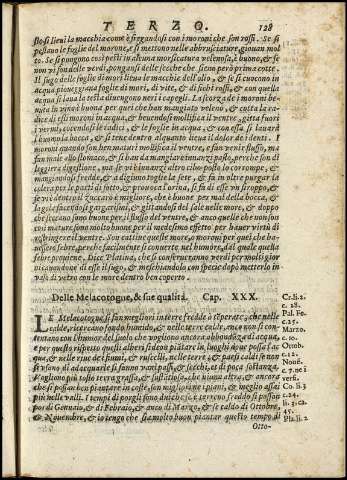 TERZO. 128
sto si lieui la macchia come s'ei gandosi con i moroni che son rossi. Se si
pestano le foglie del morone, e si mettono nelle abbrusciature, giouan mol
to. Se si pongono così pesti in alcuna morsicatura velenosa, è buono, & se
non vi son delle verdi, pongansi delle secche che sieno però prima cotte.
Il sugo delle foglie di mori lieua le macchie dell'olio, & se si cuocono in
acqua pioueggiana foglie di mori, di vite, & di fichi rossi, & con quella
acqua si laua la testa diuengono neri i capegli. La scorza di moroni be-
uuta in vino è buona per quei che han mangiato veleno, & cotta la ra-
dice di essi moroni in acqua, & beuendosi mollifica il ventre, gitta fuori
i vermi, cocendosi le radici, & le foglie in acqua, & con essa si lauarà
il buono la bocca, & si tene dentro alquanto lieua il dolor de i denti. I
moroni quando son ben maturi mollifica il ventre, e fan venir flusso, ma
fan male allo stomaco, & si han da mangiare inanzi pasto, perche son di
leggiera digestione, ma se vi sono inanzi altro cibo posto lo corrompe, &
mangiandosi fredde, & a digiuno togliono la sete, & fa in oltre purgar la
colera per le parti di sotto, & prouoca l'orina, si fa di esse vn siroppo, &
se vi è dentro il zuccaro è migliore, che è buono per mal della bocca, &
lagrisa facendosi gargarismi, & gittandosi del sale nelle more, & doppo
che seccano sono buone per il flusso del ventre, & anco quelle che non son
così mature sono molto buone per il medesimo effetto per hauer virtù di
ristringere il ventre. Son cattiue queste more, o moroni per quei che ha-
uesser febre, perche facilmente si conuerte nel humore, dal quale quella
febre prouiene. Dice Platina, che si conseruaranno verdi per molti gior
ni cauandone di esse il sugo, & meschiandolo con specie dopò metterlo in
vaso di vetro con le more dentro ben coperto.
Delle Melacotogne, & sue qualità. Cap. XXX.
LE Melacotogne si fan meglio ri in terre fredde o temperate, che nelle
calde, ricercano fondo humido, & nelle terre calde, anco non si con-
tentano con l'humor del suolo che vogliono ancora abbondanza di acqua,
e per questo rispetto questi alberi si deono piantare in luoghi doue possa l'ac
qua, & nelle riue dei fiumi, e ruscelli, nelle terre, & paesi caldi se non
vi sono da adacquarle si fanno vani passi, & secchi, et di poca sostanza.
Vogliono più tosto terra grassa, & sustantiosa, che niuna altra, & ancora
che si possan ben piantare in coste, son migliori ne i piani, & meglio assai
più nelle valli. I tempi di porgli sono due, che è terreno freddo si posson
por di Gennaio, & di Febraio, & anco di Marzo, & se caldo di Ottobre,
& Nouembre, & io tengo che sia molto buon piantar questo tempo di
Otto-
Cr. li. 2.
c. 28.
Pal. Fe.
c. 25.
Marzo.
c. 10.
Ottob.
c. 12.
Nouē.
c. 7. ne i
versi.
Co. li. 5
c. 24.
li. 3. ca.
45.
Pla. li. 2